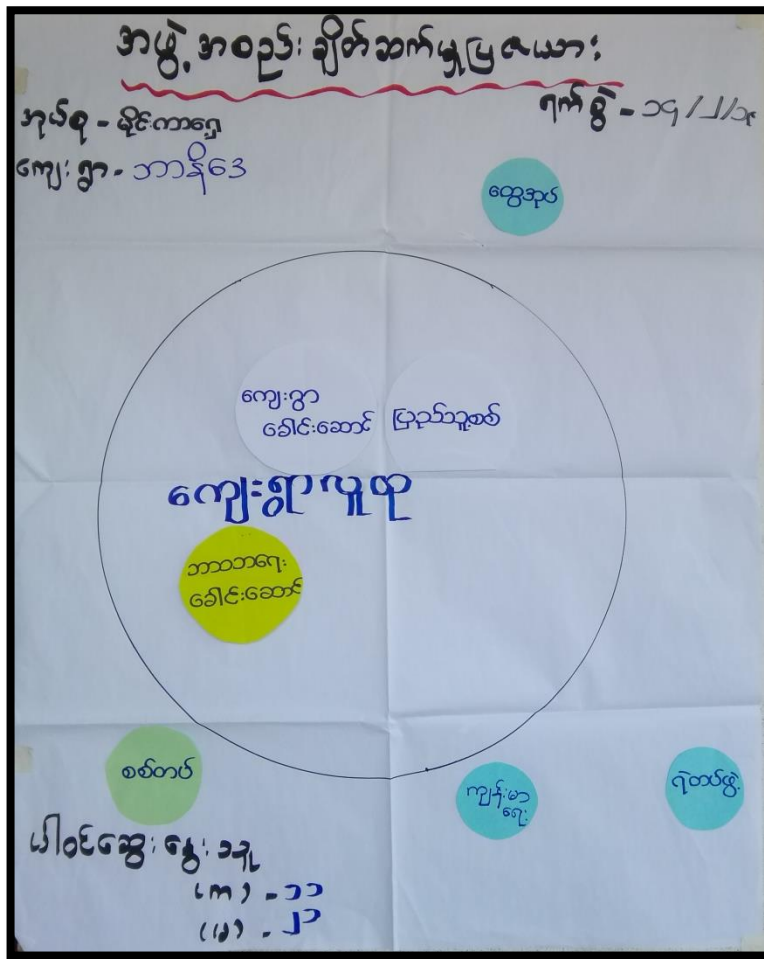 အဖွဲ့အစည်းချိတ်ဆက်မှုပြဇယား
ရက်စွဲ - ၁၄/၂/၁၉
အုပ်စု - မိုင်းကာရှေ
ကျေးရွာ - ဘာနိဒေ
ထွေအုပ်
ကျေးရွာ
ခေါင်းဆောင်
ပြည်သူ့စစ်
ကျေးရွာလူထု
ဘာသာရေး
ခေါင်းဆောင်
စစ်တပ်
ကျန်းမာ
ရေး
ရဲတပ်ဖွဲ့
ပါဝင်ဆွေးနွေးသူ
(ကျား) - ၁၁
(မ) - ၂၁